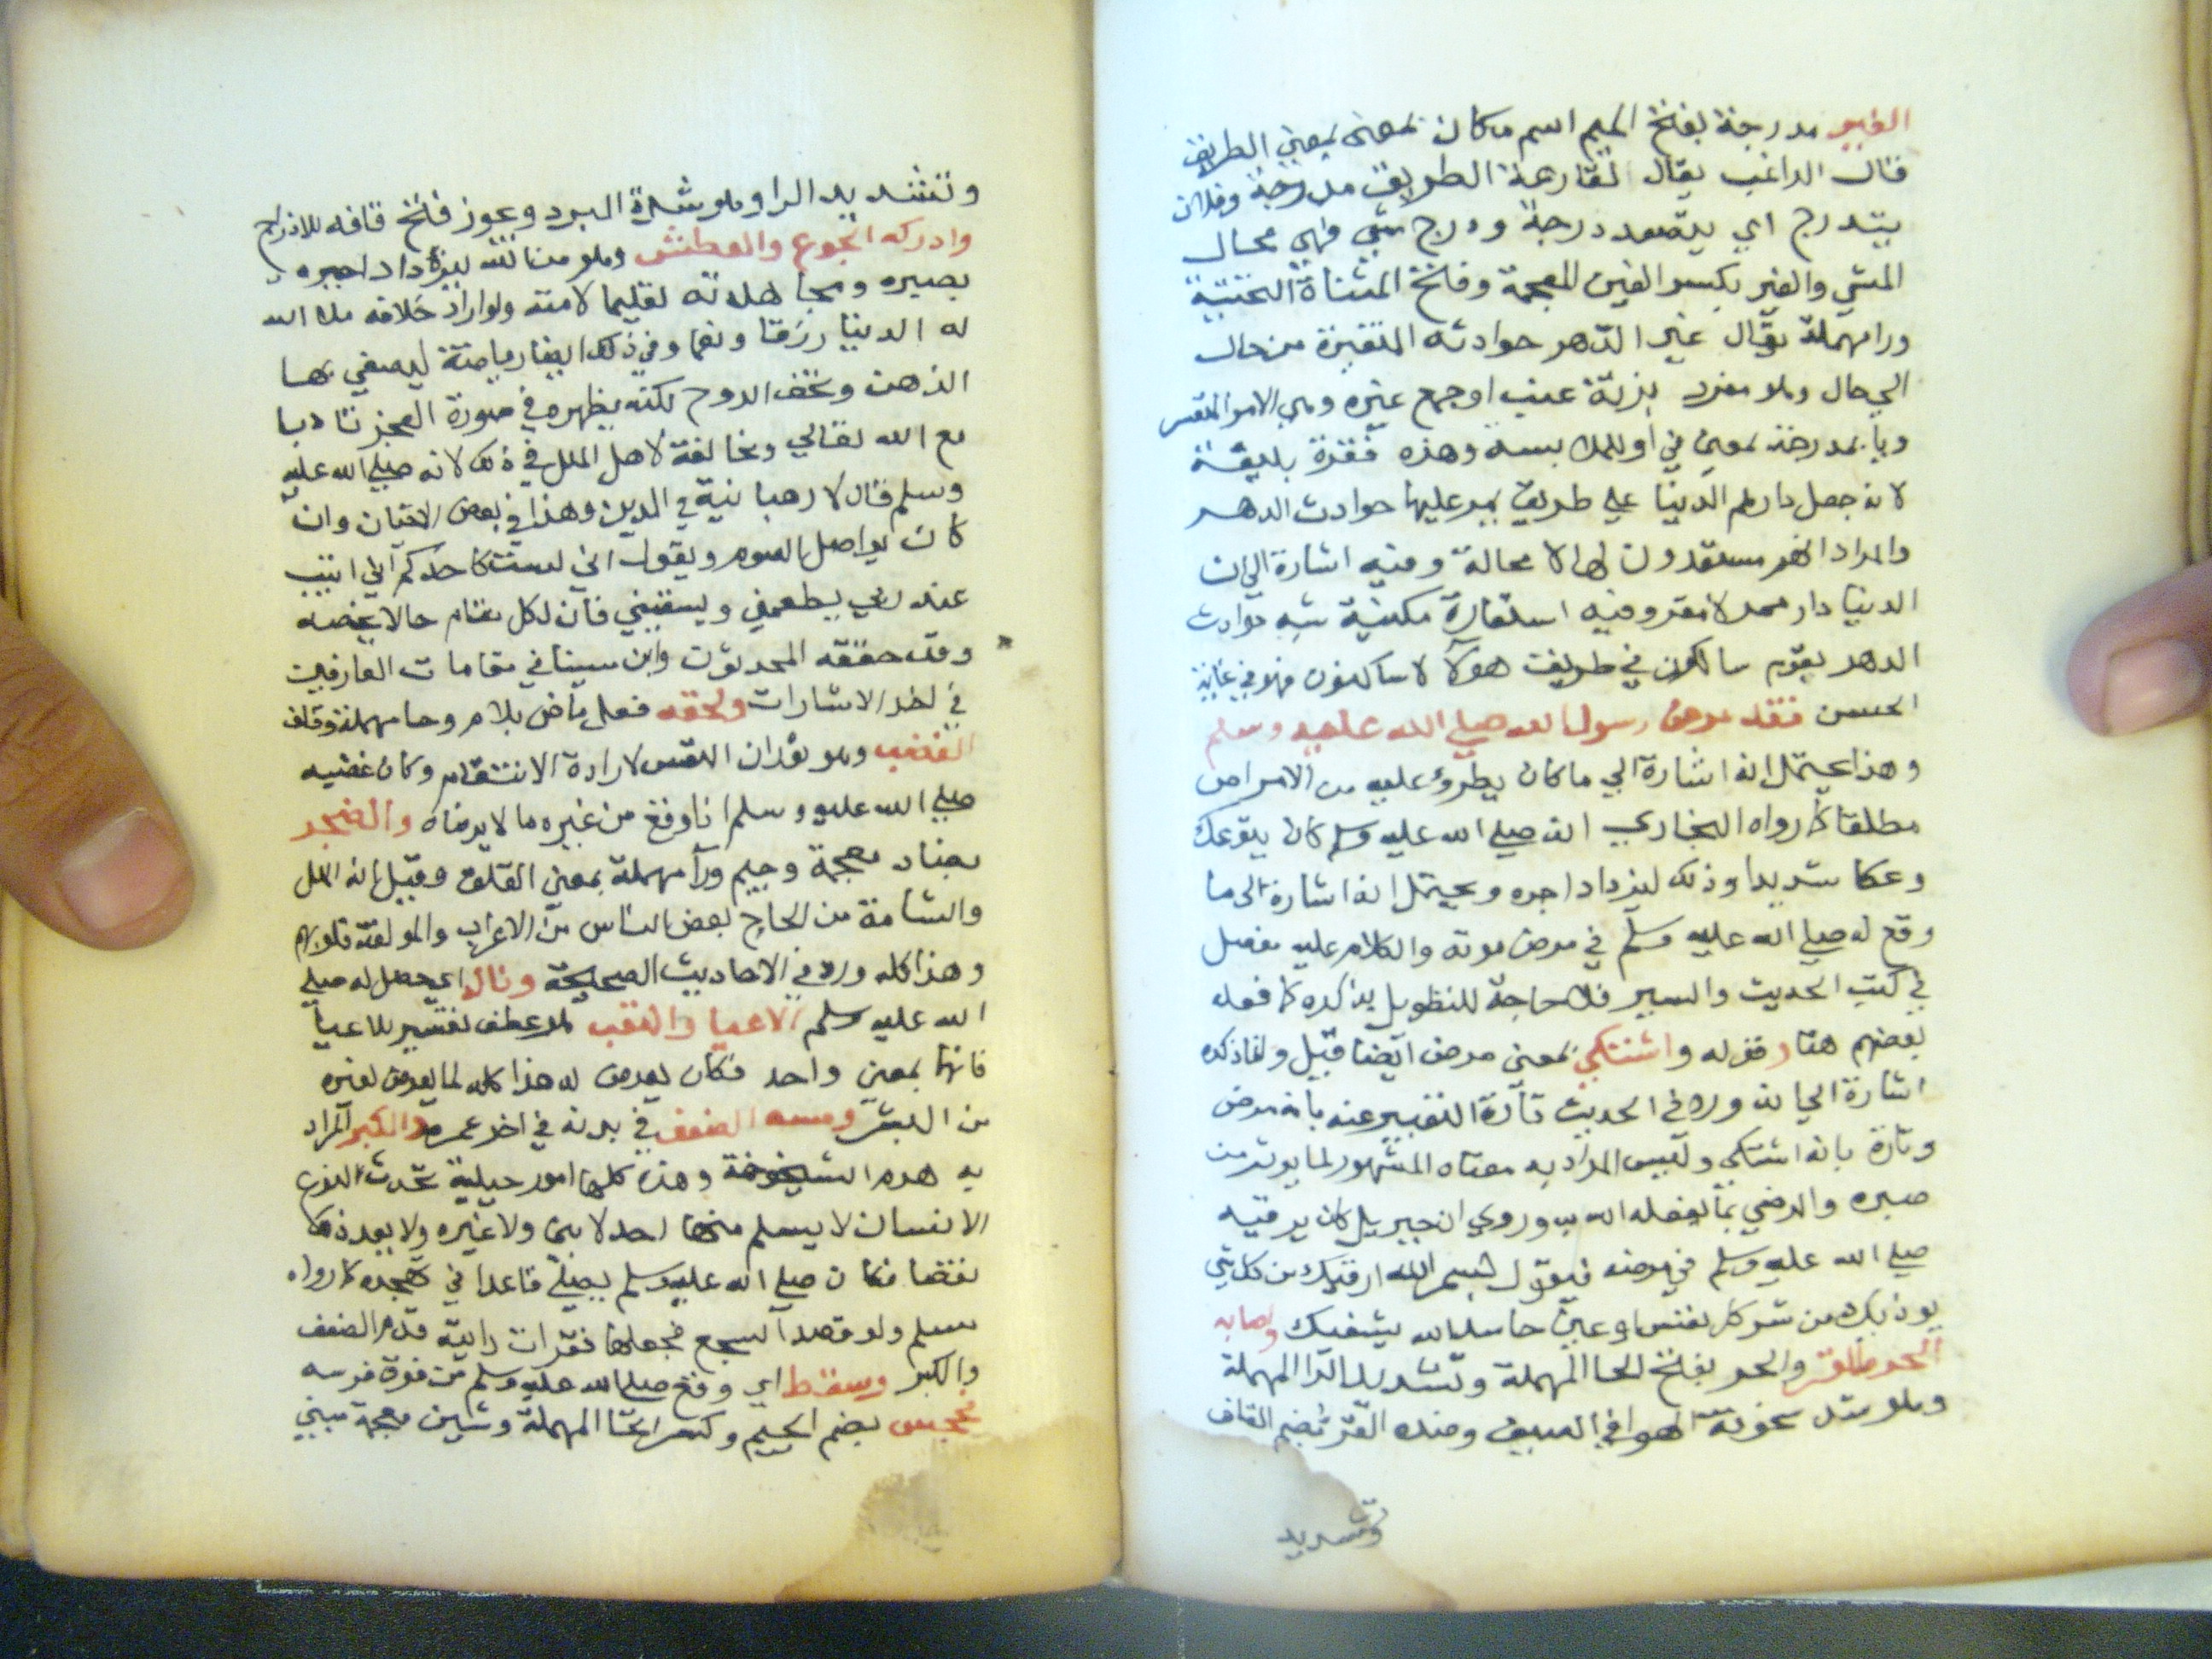 الغير مدرجة بفتح الميم اسم مكان بمعنى بمعني الطريق
قال الراغب يقال لقارعة الطريق مدرجة وفلان
يتدرج اي يتصعد درجة ودرج مشي فهي محال
المشي والغير بكسر الغين المعجمة وفتح المثناة التحتية
ورا مهملة يقال غير الدهر حوادثه المتغيرة من حال
الي حال وهو مفرد بزنة عنب او جمع غيرة وهي الامر المتغير
وبا بمدرجة بمعني في او للملابسة وهذه فقرة بليغة
لانه جعل دارهم الدنيا علي طريق يمر عليها حوادث الدهر
والمراد انهم مستعدون لها لا محالة وفيه اشارة الي ان
الدنيا دار ممر لا مقر وفيه استعارة مكنية شبه حوادث
الدهر بقوم سالكون في طريقت هولآ لا ساكنون فهو في غاية
الحسن فقد مرض رسول الله صلي الله عليه وسلم
وهذا يحتمل انه اشارة الي ما كان يطرؤ عليه من الامراض
مطلقا كما رواه البخاري انه صلي الله عليه وسلم كان يتوعك
وعكا شديدا وذلك ليزداد اجره ويحتمل انه اشارة الى ما
وقع له صلي الله عليه وسلم في مرض موته والكلام عليه مفصل
في كتب الحديث والسير فلا حاجة للتطويل بذكره كما فعله
بعضهم هنا وقوله واشتكي بمعنى مرض ايضا قيل وانما ذكره
اشارة الي انه ورد في الحديث تارة التعبير عنه بانه مرض
وتارة بانه اشتكي وليس المراد به معناه المشهور لما يوثر من
صبره والرضي بما يفعله الله به وروي ان جبريل كان يرقيه
صلي الله عليه وسلم في مرضه فيقول بسم الله ارقيك من كل شي
يوذيك من شر كل نفس او عين حاسد الله يشفيك واصابه
الحر والقر والحر بفتح الحا المهملة وتشديد الرا المهملة
وهو شد سخونة الهوا في الصيف وضده القر بضم القاف
وتشديد
وتشديد الرا وهو شدة البرد وعوز فتح قافه للازدراج
وادركه الجوع والعطش وهو من ليزداد اجره
بصبره ومجاهدته تعليما لامته ولو اراد خلافه ملا الله
له الدنيا رزقا ونعما وفي ذلك ايضا رياضة ليصفي بها
الذهن وتخف الروح لكنه يظهره في صورة العجز تادبا
مع الله تعالي ومخالفة لاهل الملل في ذلك لانه صلي الله عليه
وسلم قال لا رهبانية في الدين وهذا في بعض الاحيان وان
كان يواصل الصوم ويقول اني لست كاحدكم اني ابيت
عند ربي يطعمني ويسقيني فان لكل مقام حالا يخصه
وقد حققه المحدثون وابن سينا في مقامات العارفين
في اخر الاشارات ولحقه فعل ماض بلام وحا مهملة وقاف
الغضب وهو ثوران النفس لارادة الانتقام وكان غضبه
صلي الله عليه وسلم اذا وقع من غيره ما لا يرضاه والضجر
بضاد معجمة وجيم ورآ مهملة بمعني القلق وقيل انه الملل
والسأمة من الحاح بعض الناس من الاعراب والمولفة قلوبهم
وهذا كله ورد في الاحاديث الصحيحة وناله اي حصل له صلي
الله عليه وسلم الاعيا والتعب هو عطف تفسير للاعيا
فانهما بمعني واحد فكان يعرض له هذا كله لما يعرض لغيره
من البشر ومسه الضعف في بدنه في اخر عمره والكبر المراد
به هرم الشيخوخة وهذه كلها امور جبلية تحدث لنوع
الانسان لا يسلم منها احد لا نبي ولا غيره ولا يعد ذلك
نقصا فكان صلي الله عليه وسلم يصلي قاعدا في تهجده كما رواه
مسلم ولو قصد السجع فجعلها فقرات رائية قدم الضعف
والكبر وسقط اي وقع صلي الله عليه وسلم من فوق فرسه
فجحش بضم الجيم وكسر الحا المهملة وشين معجمة مبني